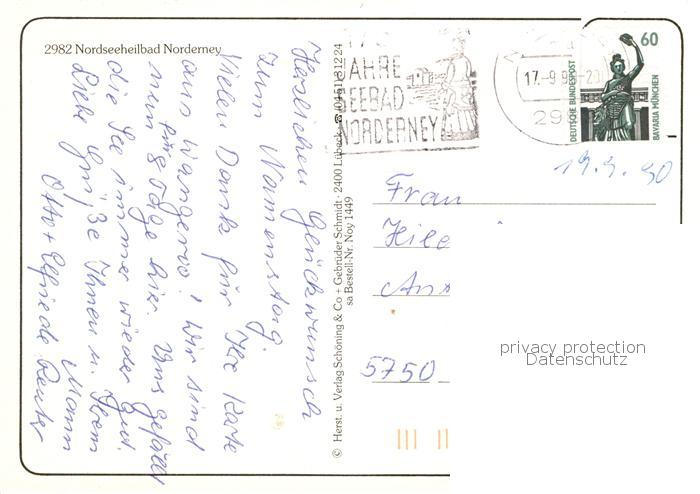 2982 Nordseeheilbad Norderney
Herzlichen Glückwunsch
zum Namenstag.
Vielen Dank für Ihre Karte
aus Wangeroo! Wir sind
nun für 8 Tage hier. Uns gefällt
die See immer wieder gut.
Liebe Grüße Ihnen u. Ihrem
Mann
Otto + Elfriede
© Herst. u. Verlag Schöning & Co + Gebrüder Schmidt · 2400 Lübeck · ☎ (0451) 31224
sa Bestell-Nr. Noy 1449
JAHRE
SEEBAD
NORDERNEY
17.-9.9
29
60
DEUTSCHE BUNDESPOST
BAVARIA MÜNCHEN
19.9.90
Frau
Hil
An
5750
privacy protection
Datenschutz